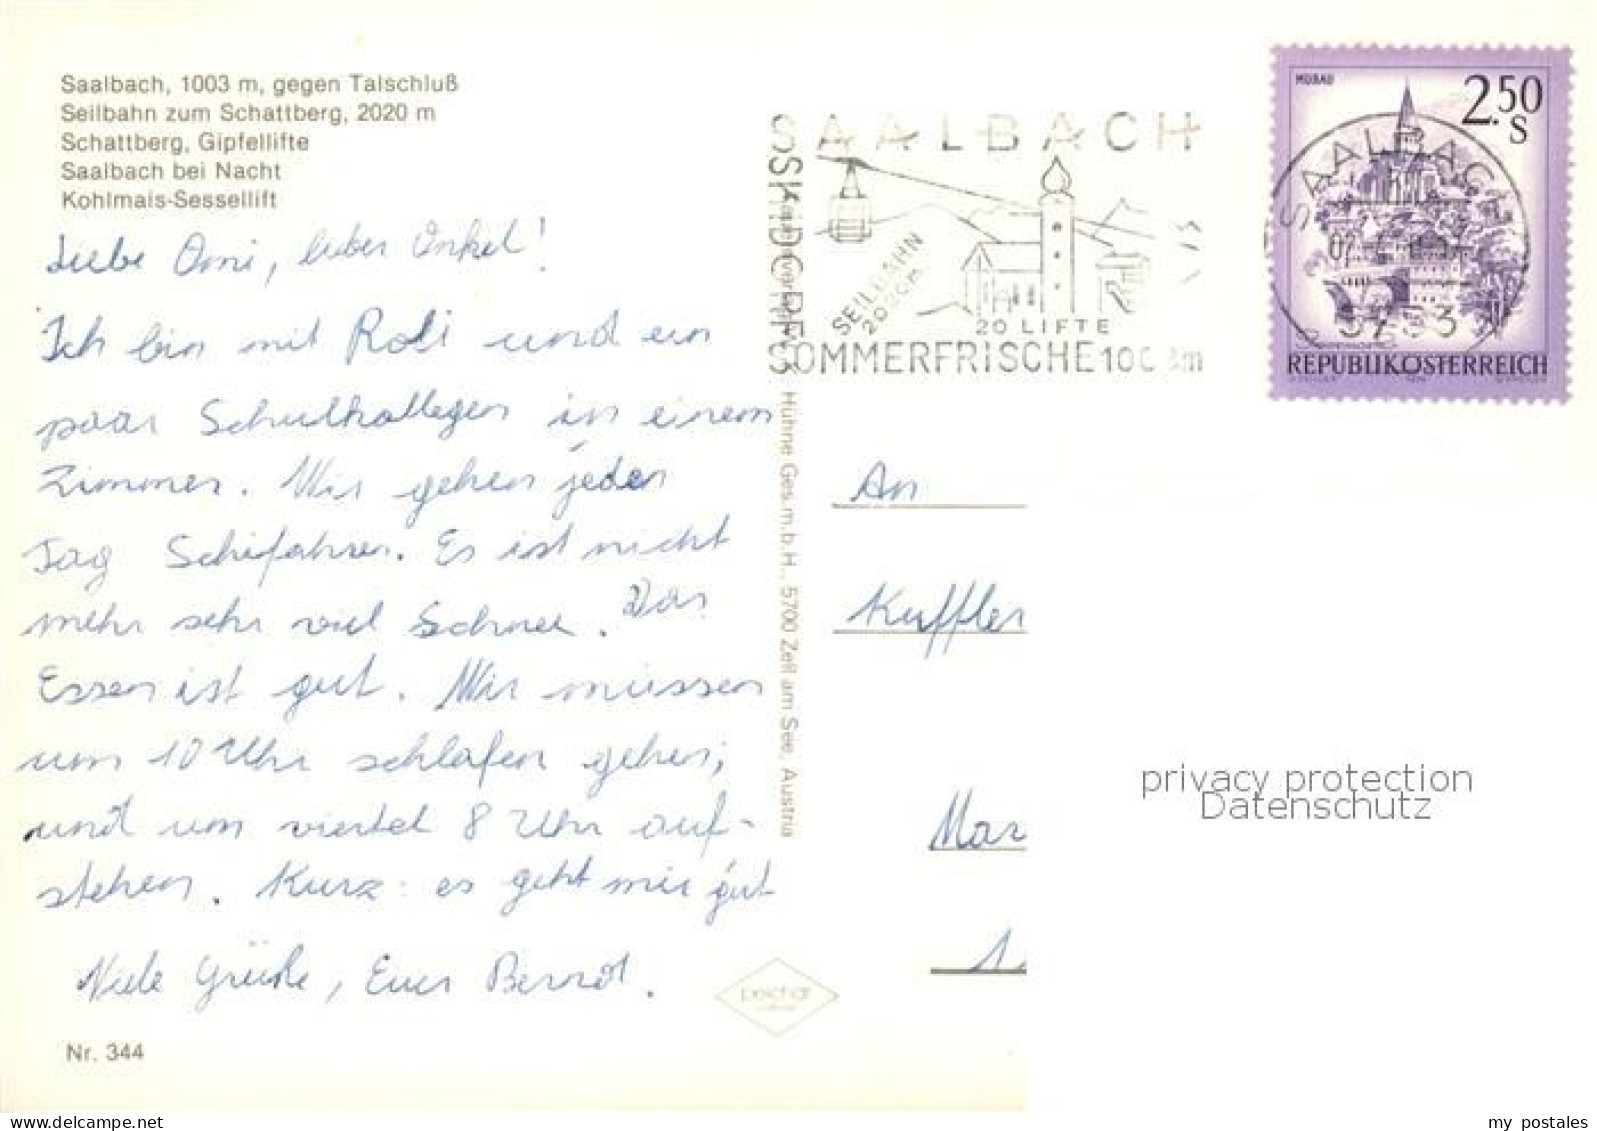 Saalbach, 1003 m, gegen Talschluß
Seilbahn zum Schattberg, 2020 m
Schattberg, Gipfellifte
Saalbach bei Nacht
Kohlmais-Sessellift
Liebe Omi, lieber Onkel!
Ich bin mit Roli und ein
paar Schulkollegen in einem
Zimmer. Wir gehen jeden
Tag Schifahren. Es ist nicht
mehr sehr viel Schnee. Das
Essen ist gut. Wir müssen
um 10 Uhr schlafen gehen,
und um viertel 8 Uhr auf-
stehen. Kurz: es geht mir gut
Viele Grüße, Euer Berndt.
Nr. 344
Hühne Ges.m.b.H., 5700 Zell am See, Austria
SAALBACH
SKIDORF
SEILBAHN
2020m
20 LIFTE
SOMMERFRISCHE 1003m
MURAU
2.50
S
SAALBACH
5753
REPUBLIK ÖSTERREICH
An
Kuffler
Mar
1.
privacy protection
Datenschutz
my_postales